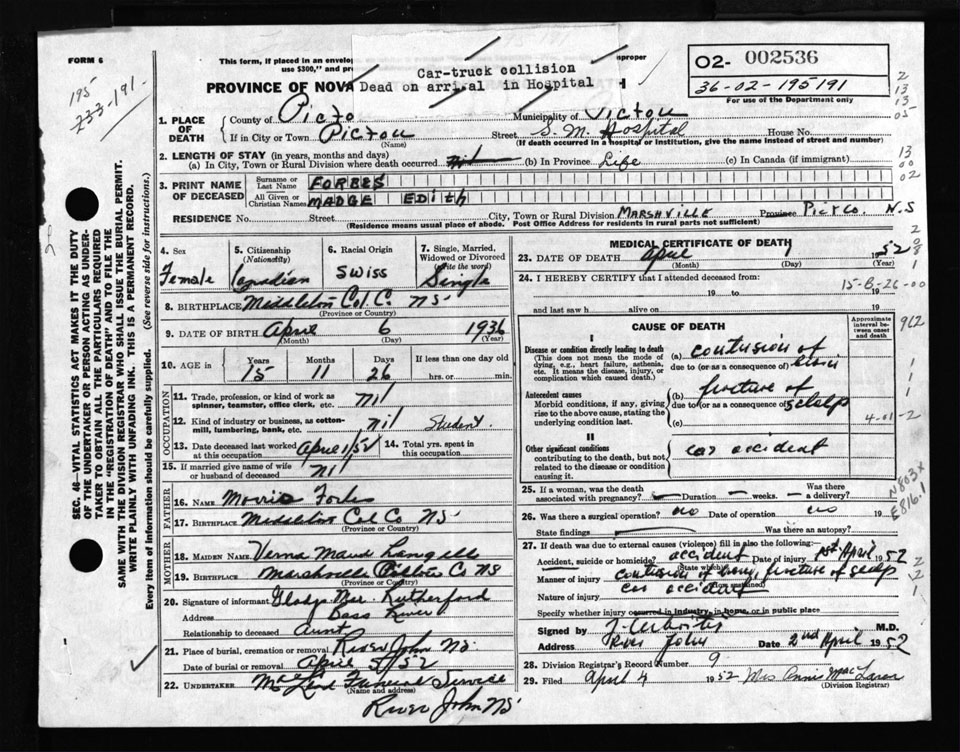 FORM 6
195
233-191.
This form, if placed in an envelope
use $300," and pr
improper
Car-truck collision
Dead on arrival in Hospital
PROVINCE OF NOVA
H
O2- 002536
36-02-195191
For use of the Department only
2
13
13
05
1. PLACE OF DEATH
County of Picto
Municipality of Pictou
If in City or Town Pictou
(Name)
Street S. M. Hospital House No.
(If death occurred in a hospital or institution, give the name instead of street and number)
2. LENGTH OF STAY (in years, months and days)
(a) In City, Town or Rural Division where death occurred (b) In Province Life (c) In Canada (if immigrant)
13
00
02
3. PRINT NAME OF DECEASED
Surname or Last Name FORBES
All Given or Christian Names MADGE EDITH
RESIDENCE No. Street City, Town or Rural Division MARSHVILLE Province Pict Co. N.S
(Residence means usual place of abode. Post Office Address for residents in rural parts not sufficient)
4. Sex
Female
5. Citizenship
(Nationality)
Canadian
6. Racial Origin
Swiss
7. Single, Married, Widowed or Divorced
(Write the word)
Single
8. BIRTHPLACE Middleton Col. C. NS
(Province or Country)
9. DATE OF BIRTH April 6 1936
(Month) (Day) (Year)
10. AGE in
Years Months Days If less than one day old
15 11 26 hrs. or min.
OCCUPATION
11. Trade, profession, or kind of work as
spinner, teamster, office clerk, etc. nil
12. Kind of industry or business, as cotton-
mill, lumbering, bank, etc. nil Student
13. Date deceased last worked at this occupation April 1/52
14. Total yrs. spent in this occupation
15. If married give name of wife or husband of deceased nil
FATHER
16. NAME Morris Forbes
17. BIRTHPLACE Middleton Col Co NS
(Province or Country)
MOTHER
18. MAIDEN NAME Verna Maud Langille
19. BIRTHPLACE Marshville Pictou Co NS
(Province or Country)
20. Signature of informant Gladys Mae Rutherford
Address Bass River
Relationship to deceased Aunt
21. Place of burial, cremation or removal River John NS.
Date of burial or removal April 3/52
22. UNDERTAKER Funeral Service
(Name and address)
River John NS
SEC. 46—VITAL STATISTICS ACT MAKES IT THE DUTY
OF THE UNDERTAKER OR PERSON ACTING AS UNDER-
TAKER TO OBTAIN ALL THE PARTICULARS REQUIRED
IN THE "REGISTRATION OF DEATH" AND TO FILE THE
SAME WITH THE DIVISION REGISTRAR WHO SHALL ISSUE THE BURIAL PERMIT.
WRITE PLAINLY WITH UNFADING INK. THIS IS A PERMANENT RECORD.
Every item of information should be carefully supplied. (See reverse side for instructions.)
MEDICAL CERTIFICATE OF DEATH
23. DATE OF DEATH April 1 1952
(Month) (Day) (Year)
24. I HEREBY CERTIFY that I attended deceased from
15-8-26-00
19 to 19
and last saw h alive on 19
CAUSE OF DEATH
Approximate interval between onset and death
962
I
Disease or condition directly leading to death
(This does not mean the mode of dying, e.g., heart failure, asthenia, etc. It means the disease, injury, or complication which caused death.
(a) contusion of
due to (or as a consequence of)
Antecedent causes
Morbid conditions, if any, giving rise to the above cause, stating the underlying condition last.
(b) fracture of
due to (or as a consequence of) scalp
(c)
4-01-2
II
Other significant conditions
contributing to the death, but not related to the disease or condition causing it.
car accident
25. If a woman, was the death associated with pregnancy? Duration weeks. Was there a delivery?
N803x
E816.1
26. Was there a surgical operation? no Date of operation no 19
State findings Was there an autopsy?
27. If death was due to external causes (violence) fill in also the following:—
Accident, suicide or homicide? accident Date of injury 1st April 1952
(State which)
Manner of injury contusion of fracture of scalp
Nature of injury car accident
Specify whether injury occurred in industry, in home, or in public place
Signed by M.D.
Address River John Date 2nd April 1952
28. Division Registrar's Record Number 9
29. Filed April 4 1952 Mrs Annie MacLaren
(Division Registrar)